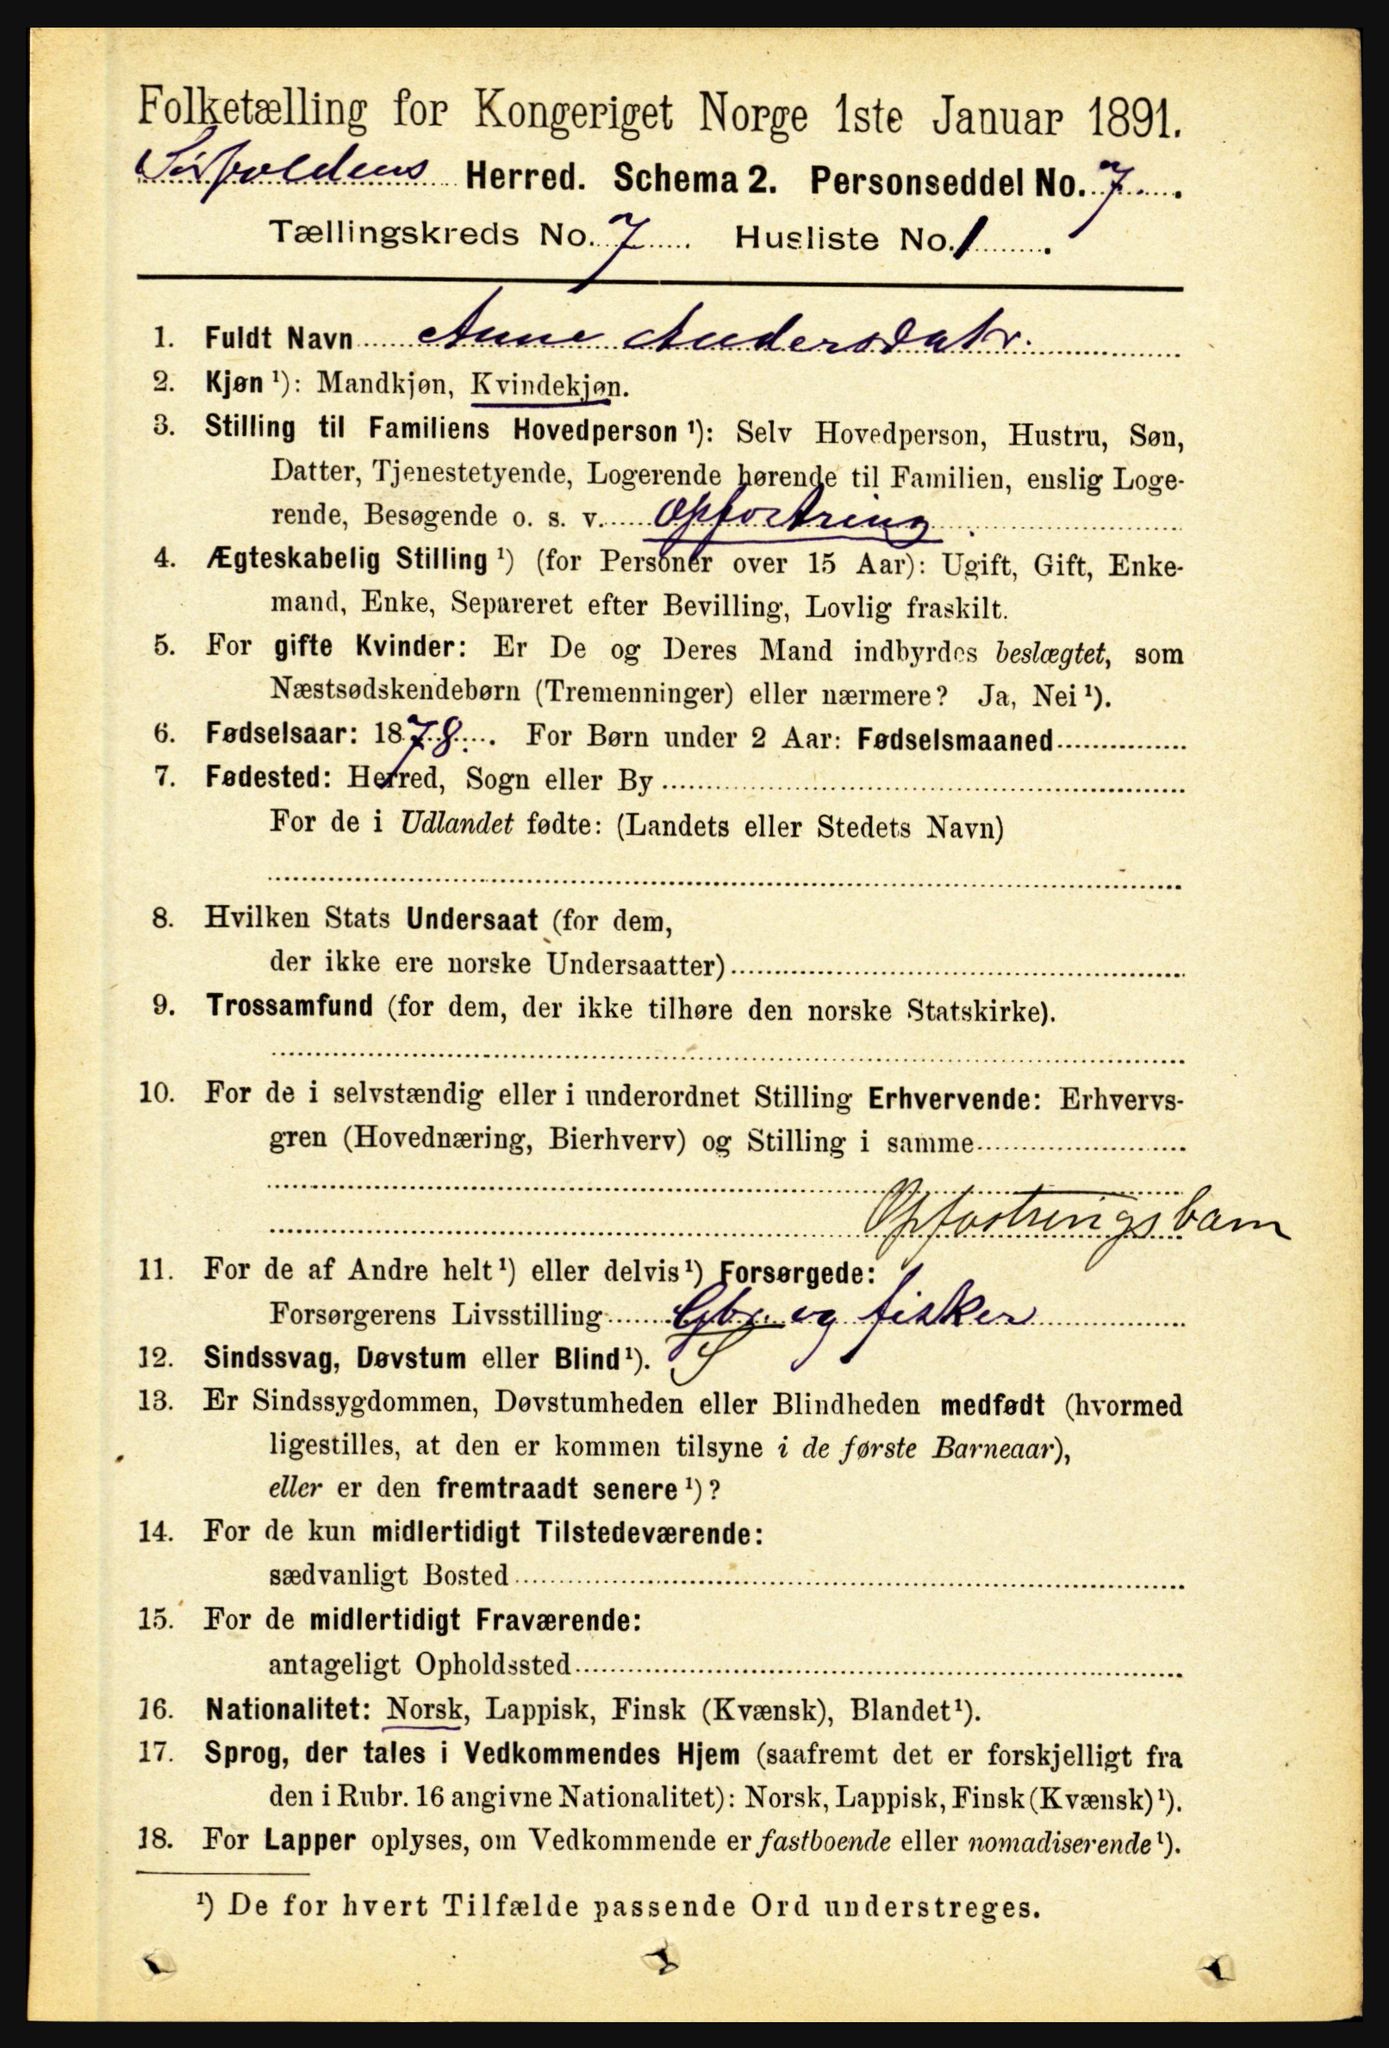 Folketælling for Kongeriget Norge 1ste Januar 1891.
Sørfoldens Herred. Schema 2. Personseddel No. 7
Tællingskreds No. 7 Husliste No. 1
1. Fuldt Navn Anne Andersdatr.
2. Kjøn ¹): Mandkjøn, Kvindekjøn.
3. Stilling til Familiens Hovedperson ¹): Selv Hovedperson, Hustru, Søn,
Datter, Tjenestetyende, Logerende hørende til Familien, enslig Loge-
rende, Besøgende o. s. v. opfostring
4. Ægteskabelig Stilling ¹) (for Personer over 15 Aar): Ugift, Gift, Enke-
mand, Enke, Separeret efter Bevilling, Lovlig fraskilt.
5. For gifte Kvinder: Er De og Deres Mand indbyrdes beslægtet, som
Næstsødskendebørn (Tremenninger) eller nærmere? Ja, Nei ¹).
6. Fødselsaar: 1878. For Børn under 2 Aar: Fødselsmaaned
7. Fødested: Herred, Sogn eller By
For de i Udlandet fødte: (Landets eller Stedets Navn)
8. Hvilken Stats Undersaat (for dem,
der ikke ere norske Undersaatter)
9. Trossamfund (for dem, der ikke tilhøre den norske Statskirke).
10. For de i selvstændig eller i underordnet Stilling Erhvervende: Erhvervs-
gren (Hovednæring, Bierhverv) og Stilling i samme
Opfostringsbarn
11. For de af Andre helt ¹) eller delvis ¹) Forsørgede:
Forsørgerens Livsstilling Gbr. og fisker
12. Sindssvag, Døvstum eller Blind ¹). S
13. Er Sindssygdommen, Døvstumheden eller Blindheden medfødt (hvormed
ligestilles, at den er kommen tilsyne i de første Barneaar),
eller er den fremtraadt senere ¹)?
14. For de kun midlertidigt Tilstedeværende:
sædvanligt Bosted
15. For de midlertidigt Fraværende:
antageligt Opholdssted
16. Nationalitet: Norsk, Lappisk, Finsk (Kvænsk), Blandet ¹).
17. Sprog, der tales i Vedkommendes Hjem (saafremt det er forskjelligt fra
den i Rubr. 16 angivne Nationalitet): Norsk, Lappisk, Finsk (Kvænsk) ¹).
18. For Lapper oplyses, om Vedkommende er fastboende eller nomadiserende ¹).
¹) De for hvert Tilfælde passende Ord understreges.